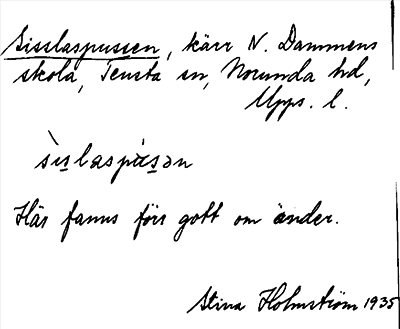 Sisslaspussen, kärr N. Dammens
skola, Tensta sn, Norunda hd,
Upps. l.
sìs̲laspùs̲ən
Här fanns förr gott om änder.
Stina Holmström 1935